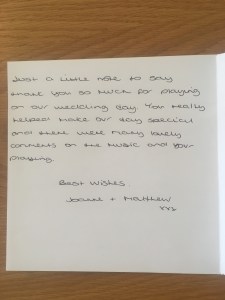 Just a little note to say
thank you so much for playing
on our wedding day. You really
helped make our day special
and there were many lovely
comments on the music and your
playing.
Best Wishes
Joanne + Matthew
xxx